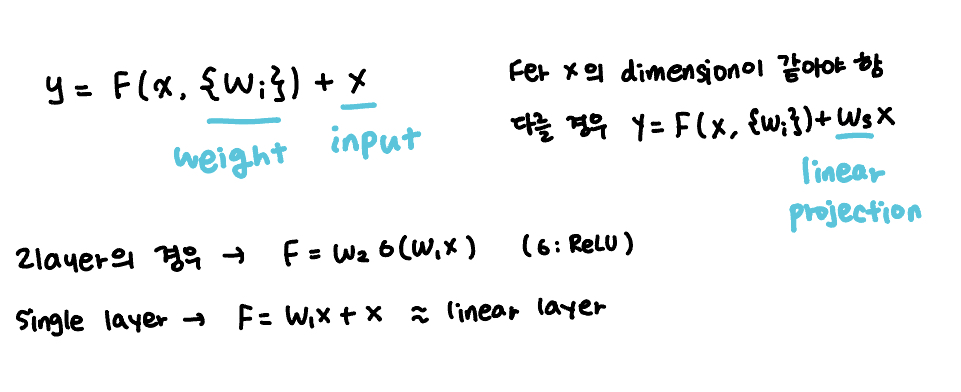 y = F(x, {Wi}) + x
weight
input
F와 x의 dimension이 같아야 함
다를 경우 y = F(x, {Wi}) + Wsx
linear
projection
2layer의 경우 → F = W2 σ(W1x) (σ: ReLU)
Single layer → F = W1x + x ≈ linear layer